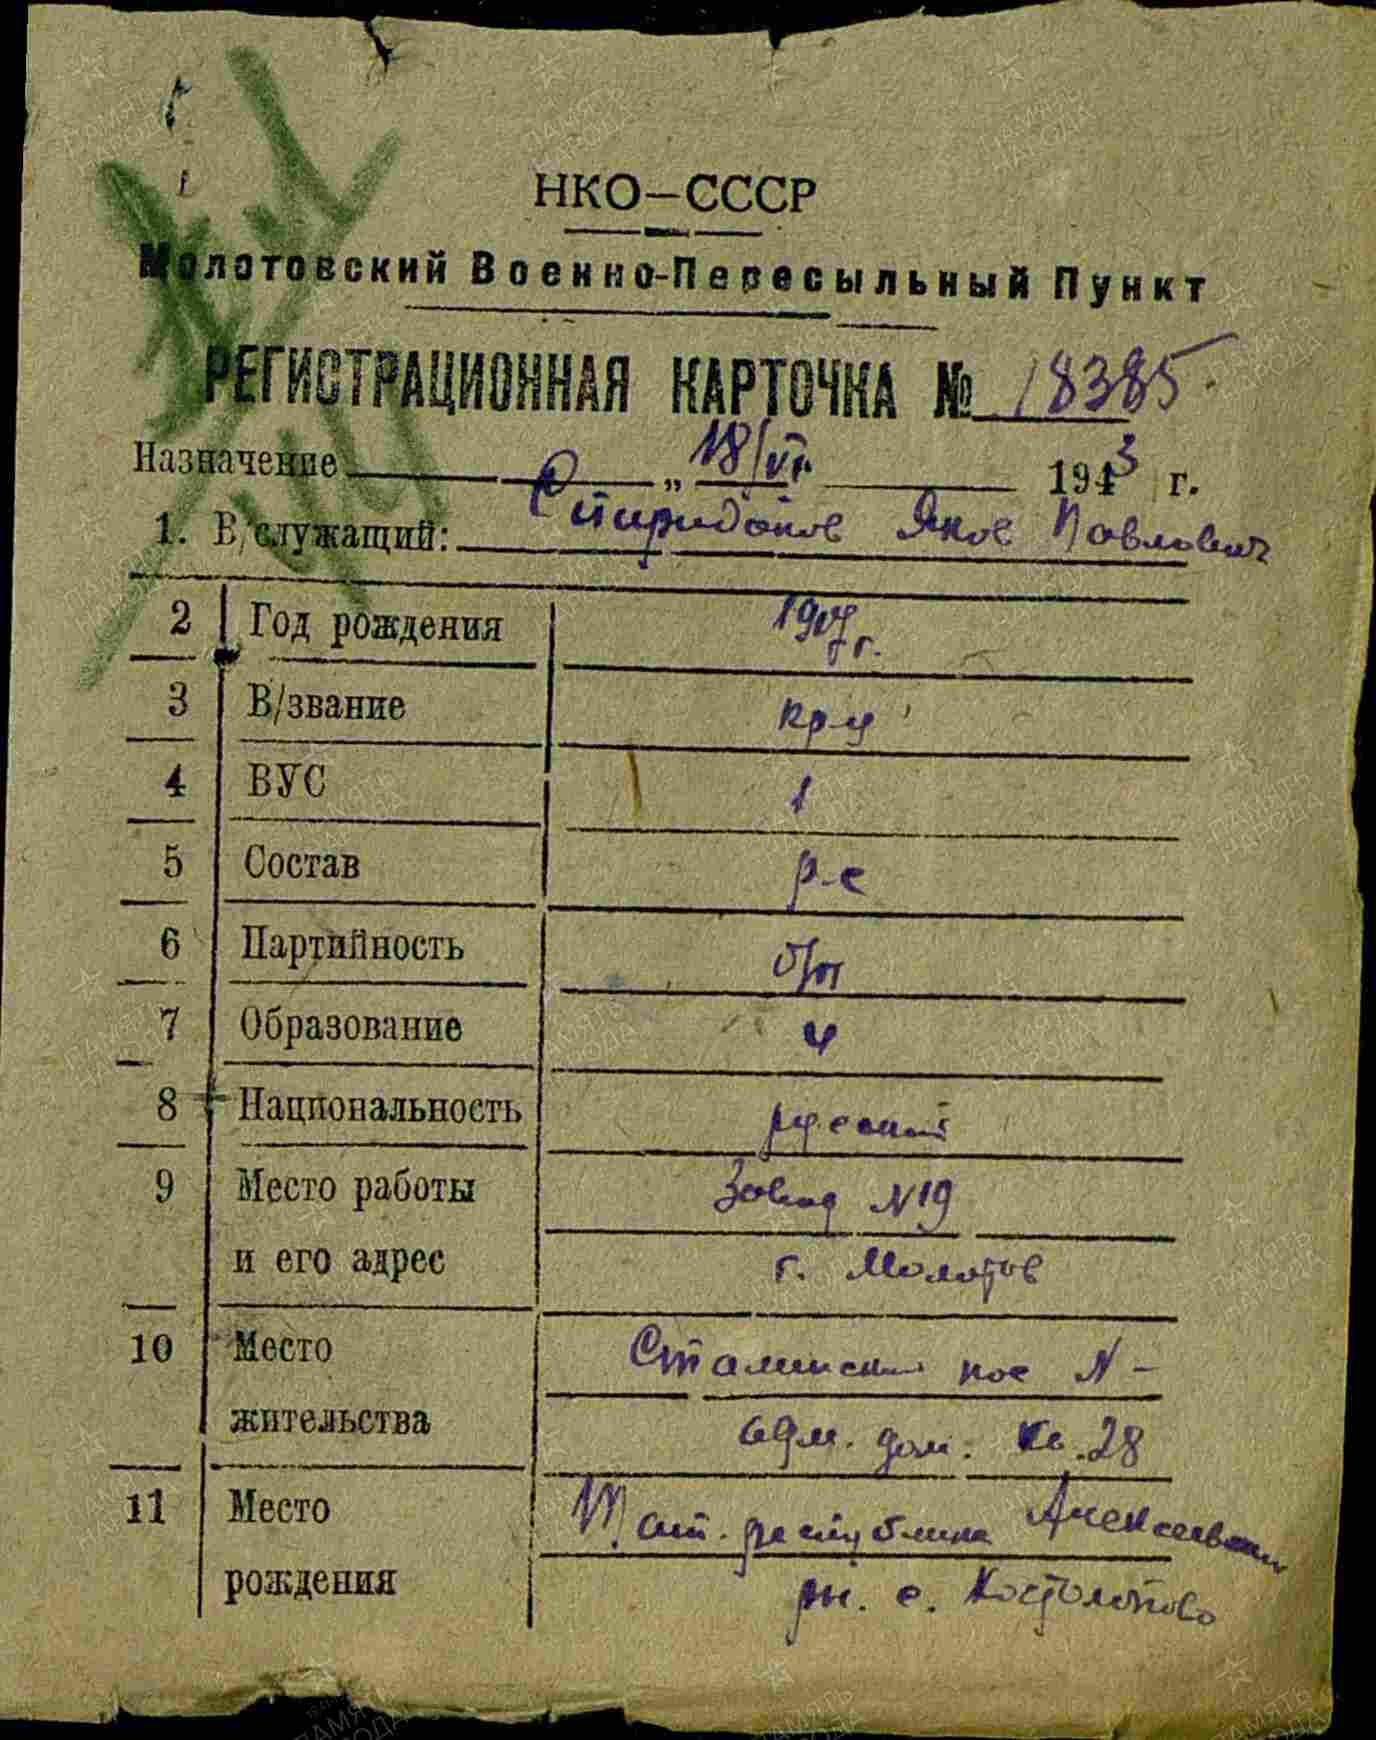 НКО–СССР
Молотовский Военно-Пересыльный Пункт
РЕГИСТРАЦИОННАЯ КАРТОЧКА № 18385
Назначение „ 18/VI 1943 г.
1. В/служащий: Спиридонов Яков Павлович
2 Год рождения 1907 г.
3 В/звание кр-ц
4 ВУС 1
5 Состав р-с
6 Партийность б/п
7 Образование 4
8 Национальность русский
9 Место работы Завод N19
и его адрес г. Молотов
10 Место Сталинский пос N –
жительства адм. дом. кв. 28
11 Место Тат. республика Алексеевский
рождения рн. с.